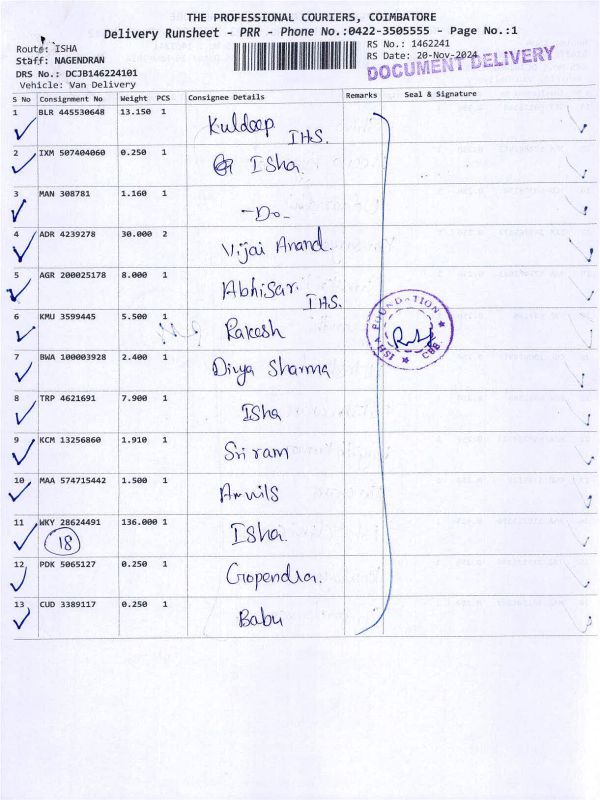 THE PROFESSIONAL COURIERS, COIMBATORE
Delivery Runsheet - PRR - Phone No.:0422-3505555 - Page No.:1
Route: ISHA
RS No.: 1462241
Staff: NAGENDRAN
RS Date: 20-Nov-2024
DOCUMENT DELIVERY
DRS No.: DCJB146224101
Vehicle: Van Delivery
S No Consignment No Weight PCS Consignee Details Remarks Seal & Signature
1 BLR 445530648 13.150 1 Kuldeep IHS.
2 IXM 507404060 0.250 1 Isha
3 MAN 308781 1.160 1 -Do-
4 ADR 4239278 30.000 2 Vijai Anand.
5 AGR 200025178 8.000 1 Abhisar. IHS.
6 KMU 3599445 5.500 1 Rakesh
ISHA FOUNDATION CBE
7 BWA 100003928 2.400 1 Divya Sharma
8 TRP 4621691 7.900 1 Isha
9 KCM 13256860 1.910 1 Sriram
10 MAA 574715442 1.500 1
11 WKY 28624491 136.000 1 Isha.
18
12 PDK 5065127 0.250 1 Gopendra.
13 CUD 3389117 0.250 1 Babu